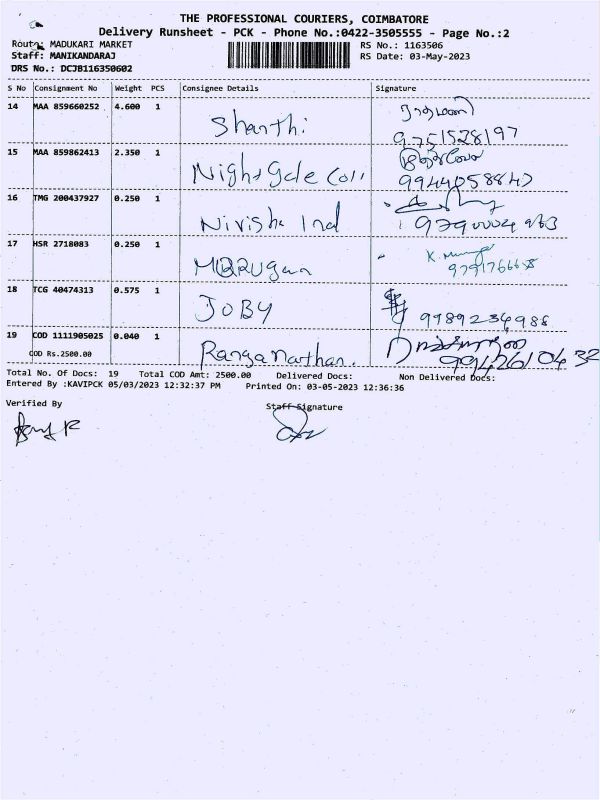 THE PROFESSIONAL COURIERS, COIMBATORE
Delivery Runsheet - PCK - Phone No.:0422-3505555 - Page No.:2
Route: MADUKARI MARKET RS No.: 1163506
Staff: MANIKANDARAJ RS Date: 03-May-2023
DRS No.: DCJB116350602
S No Consignment No Weight PCS Consignee Details Signature
14 MAA 859660252 4.600 1 Shanthi
9751528197
15 MAA 859862413 2.350 1
9944058847
16 TMG 200437927 0.250 1 Nivisha Ind
17 HSR 2718083 0.250 1
9791766658
18 TCG 40474313 0.575 1 JOBY 9989234988
19 COD 1111905025 0.040 1 Ranganathan.
COD Rs.2500.00 9942610432
Total No. Of Docs: 19 Total COD Amt: 2500.00 Delivered Docs: Non Delivered Docs:
Entered By :KAVIPCK 05/03/2023 12:32:37 PM Printed On: 03-05-2023 12:36:36
Verified By Staff Signature